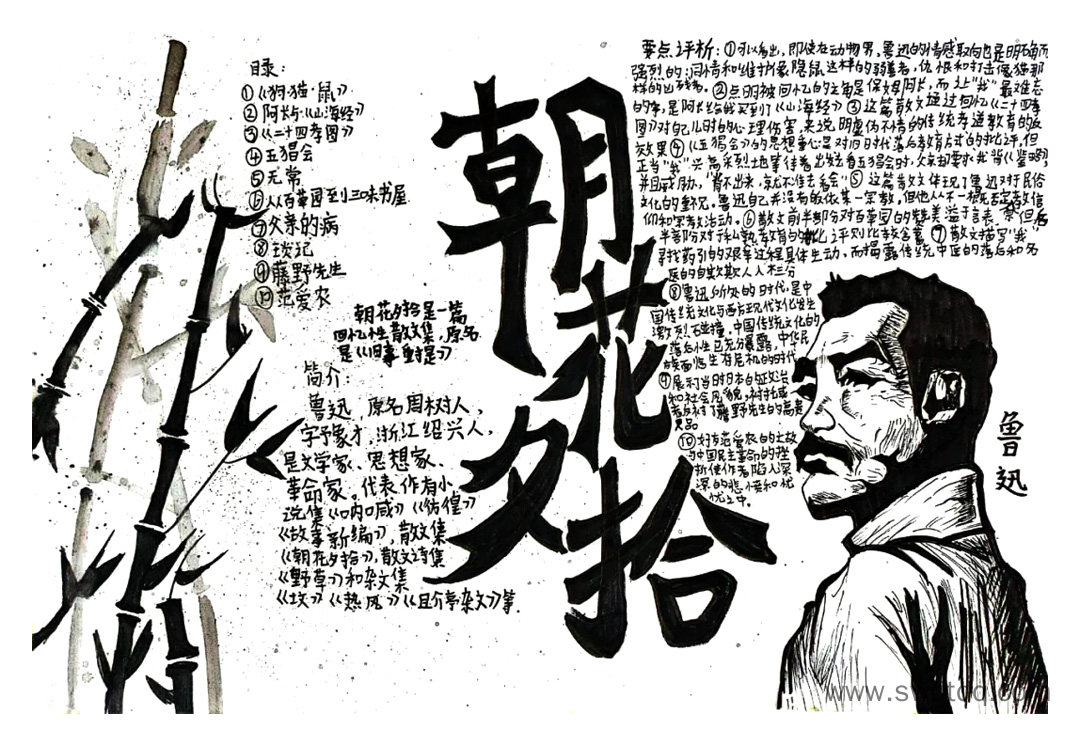 目录:
①《狗·猫·鼠》
②阿长与《山海经》
③《二十四孝图》
④五猖会
⑤无常
⑥从百草园到三味书屋
⑦父亲的病
⑧琐记
⑨藤野先生
⑩范爱农
朝花夕拾是一篇
回忆性散文集,原名
是《旧事重提》
简介:
鲁迅,原名周树人,
字予象才,浙江绍兴人,
是文学家、思想家、
革命家。代表作有小
说集《呐喊》《彷徨》
《故事新编》,散文集
《朝花夕拾》,散文诗集
《野草》和杂文集
《坟》《热风》《且介亭杂文》等.
朝花夕拾
要点评析:①可以看出,即使在动物界,鲁迅的情感取向也是明确而
强烈的:同情和维护像隐鼠这样的弱善者,仇恨和打击像猫那
样的凶残者。②点明被回忆的主角是保姆阿长,而让“我”最难忘
的事,是阿长给我买到了《山海经》③这篇散文通过回忆《二十四孝
图》对自己儿时的心理伤害,来说明虚伪不情的传统孝道教育的反
效果④《五猖会》的思想重心是对旧时代落后教育方式的批评,但
正当“我”兴高采烈地等待着出发看五猖会时,父亲却要求“我”背《鉴略》,
并且威胁,“背不出来,就不准去看会”⑤这篇散文体现了鲁迅对于民俗
文化的重视。鲁迅自己并没有皈依某一宗教,但他从不一概否定
仰和宗教活动。⑥散文前半部分对百草园的赞美溢于言表,但后
半部分对于私塾教育的批评则比较含蓄⑦散文描写“我”
寻找药引的艰辛过程具体生动,而揭露传统中医的落后和名
医的自欺欺人入木三分
⑧鲁迅所处的时代,是中
国传统文化与西方现代文化发生
激烈碰撞,中国传统文化的
落后性已充分暴露,中华民
族面临生存危机的时代
⑨展示当时日本的政治
和社会风貌,衬托或
者反衬了藤野先生的高贵
品
⑩好友范爱农的亡故
与中国民主革命的挫
折使作者陷入深
深的悲愤和忧
忧之中。
鲁迅